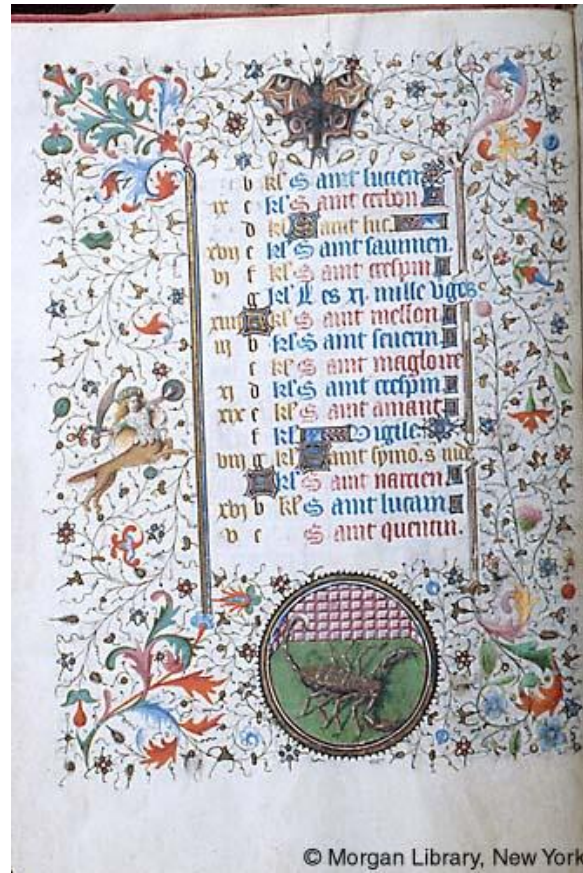 b kl' S aint lucien
ix c kl' S aint cerbon
d kl' Saint luc.
xvij e kl' S aint sauinien.
vj f kl' S aint crespin
g kl' L es xj. mille v'ges
xiiij A kl' S aint mellon
iij b kl' S aint seuerin
c kl' S aint magloire
xj d kl' S aint crespin
xix e kl' S aint amant
f kl' Vigile
viij g kl' Saint symo. s. iude
A kl' S aint narcien
xvj b kl' S aint lucain
v c S aint quentin.
© Morgan Library, New York